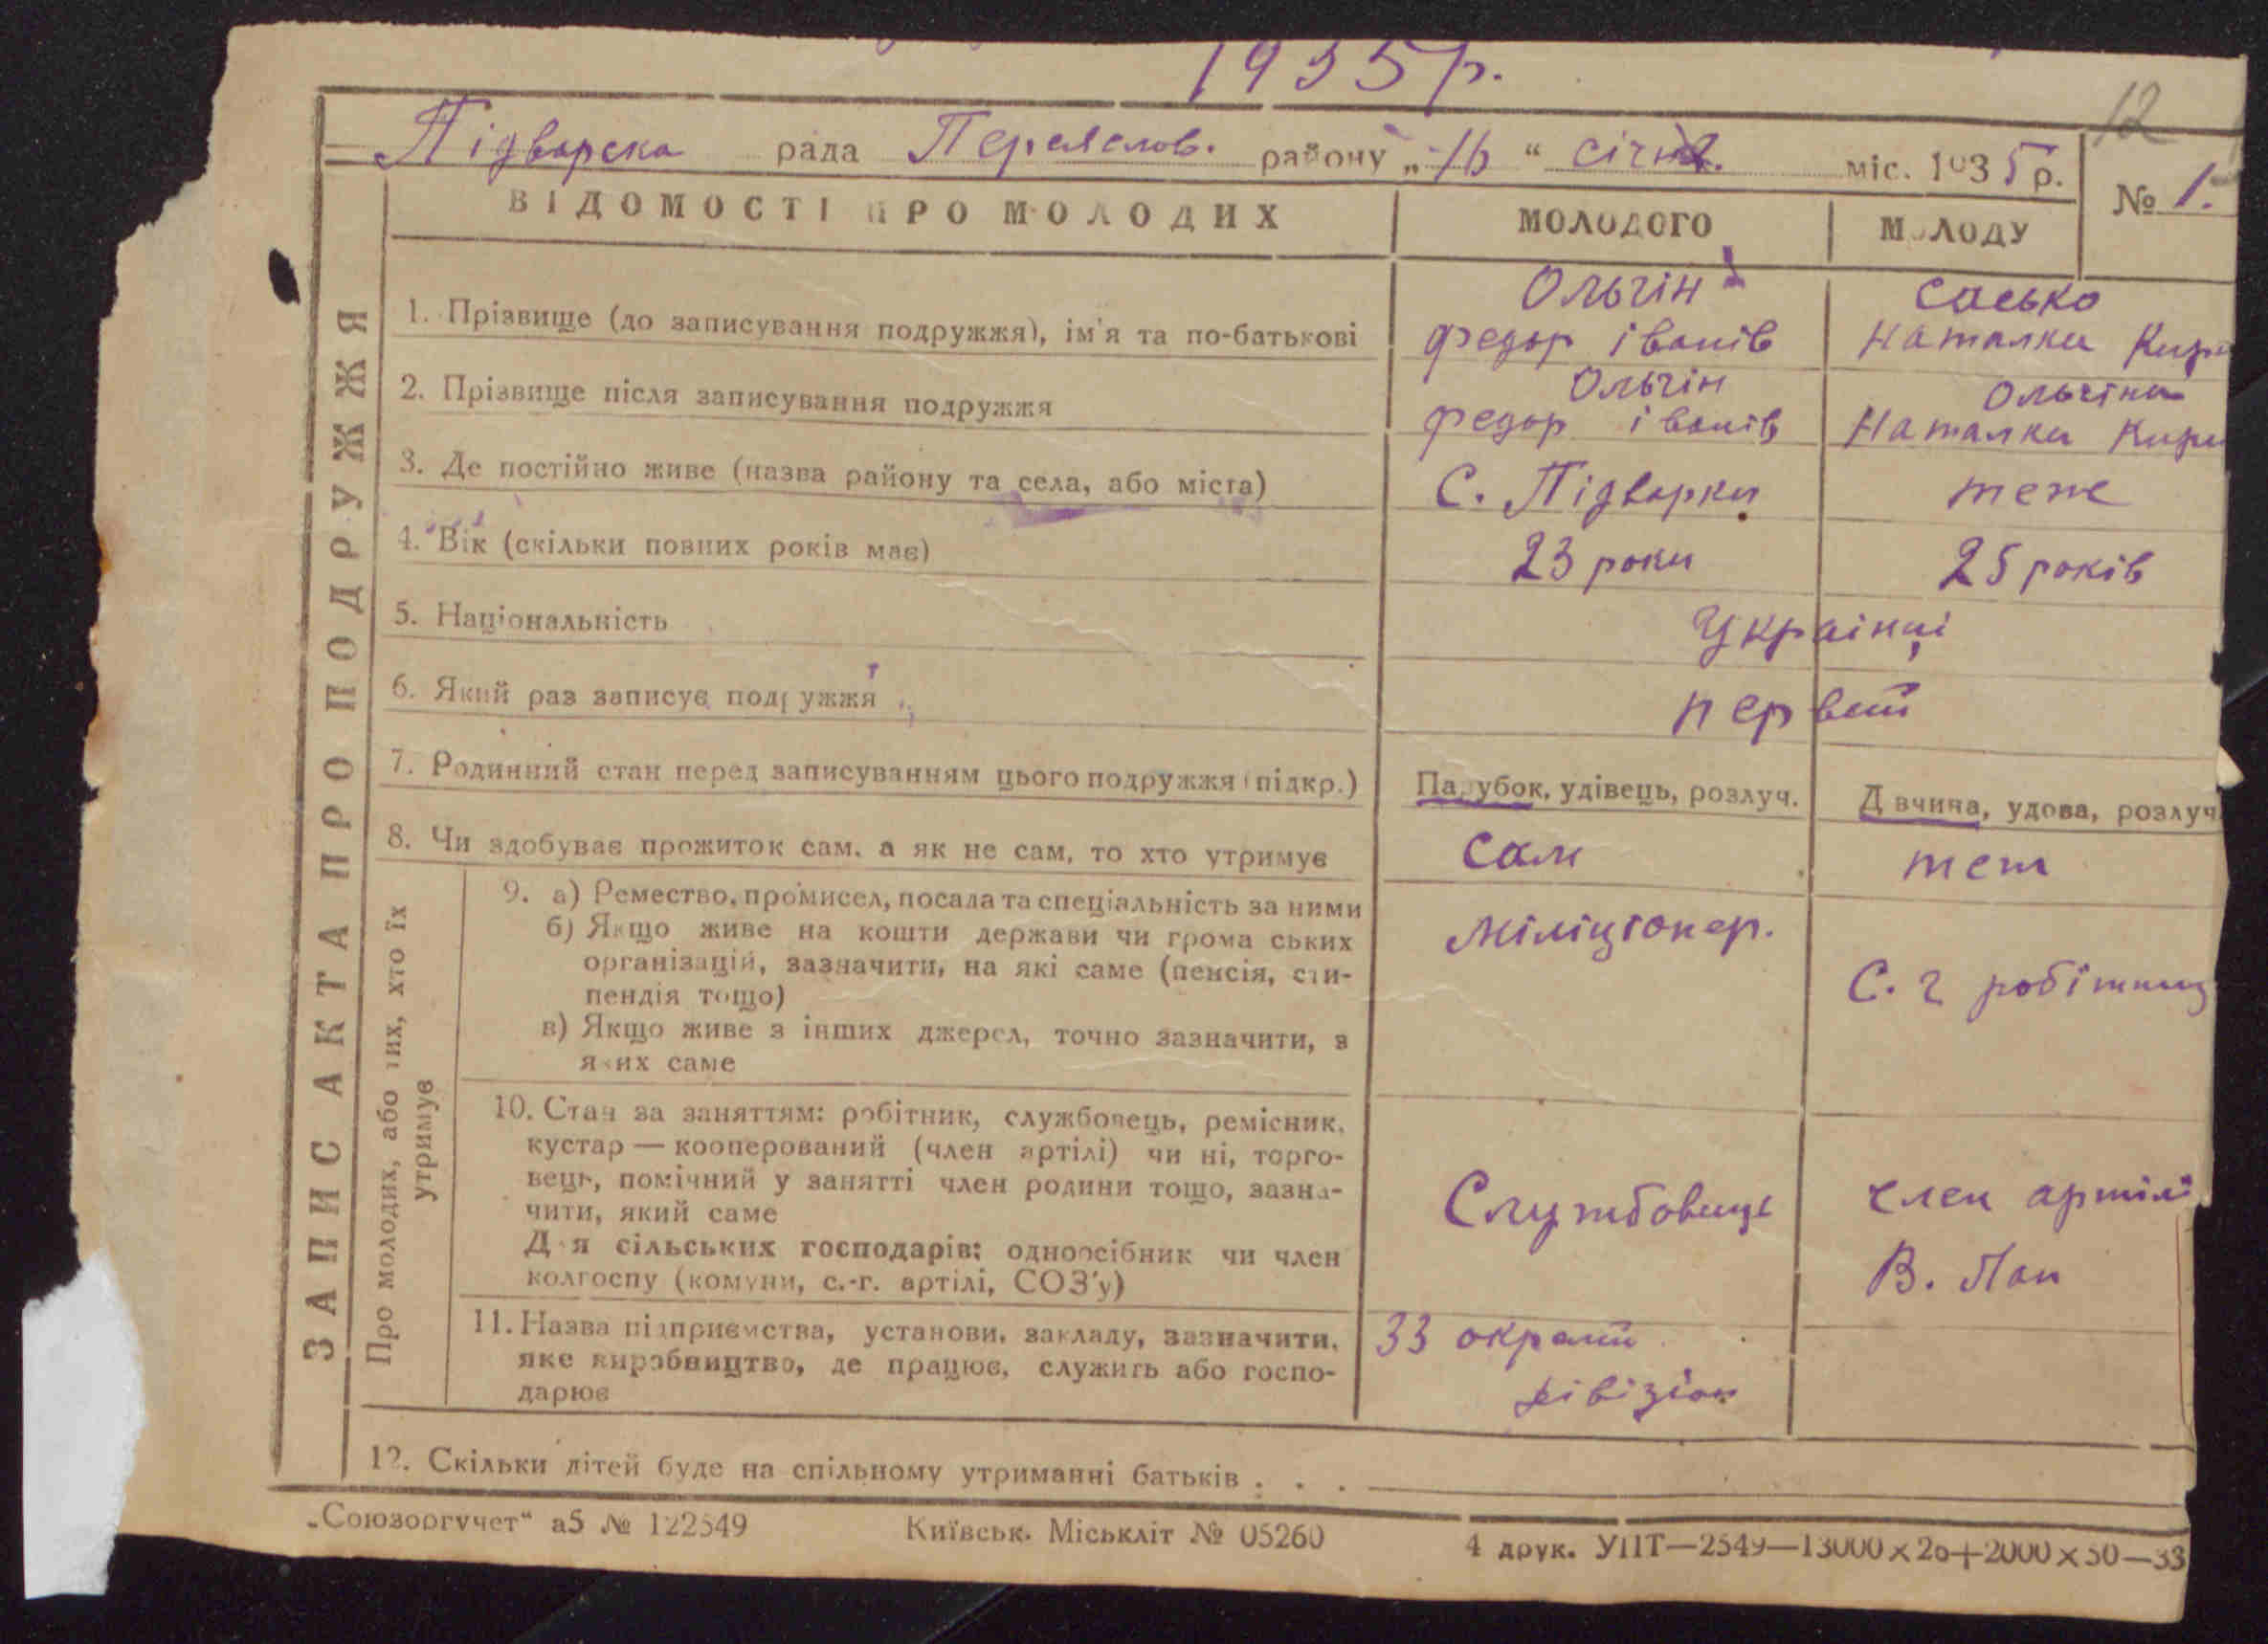 1935 р.
12
Підварска рада Переяслов. району „16“ січня. міс. 1935 р.
№ 1.
ВІДОМОСТІ ПРО МОЛОДИХ
МОЛОДОГО
МОЛОДУ
ЗАПИС АКТА ПРО ПОДРУЖЖЯ
1. Прізвище (до записування подружжя), ім'я та по-батькові
Ольгін
федор іванів
Сасько
Наталка Кири
2. Прізвище після записування подружжя
Ольгін
федор іванів
Ольгіна
Наталка Кири
3. Де постійно живе (назва району та села, або міста)
С. Підварки
теж
4. Вік (скільки повних років має)
23 роки
25 років
5. Національність
Українці
6. Який раз записує подружжя
первий
7. Родинний стан перед записуванням цього подружжя (підкр.)
Парубок, удівець, розлуч.
Дівчина, удова, розлуч
8. Чи здобуває прожиток сам, а як не сам, то хто утримує
сам
теж
Про молодих, або тих, хто їх
утримує
9. а) Ремество, промисел, посада та спеціальність за ними
б) Якщо живе на кошти держави чи громадських
організацій, зазначити, на які саме (пенсія, сти-
пендія тощо)
в) Якщо живе з інших джерел, точно зазначити, з
яких саме
Міліціонер.
С. г робітниц
10. Стан за заняттям: робітник, службовець, ремісник,
кустар — кооперований (член артілі) чи ні, торго-
вець, помічний у занятті член родини тощо, зазна-
чити, який саме
Для сільських господарів: одноосібник чи член
колгоспу (комуни, с.-г. артілі, СОЗ'у)
Службовець
член артілі
В. Лан
11. Назва підприємства, установи, закладу, зазначити,
яке виробництво, де працює, служить або госпо-
дарює
33 окрамий
дівізіон
12. Скільки дітей буде на спільному утриманні батьків . . .
„Союзоргучет“ а5 № 122549
Київськ. Міськліт № 05260
4 друк. УПТ—2549—13000×20+2000×50—33